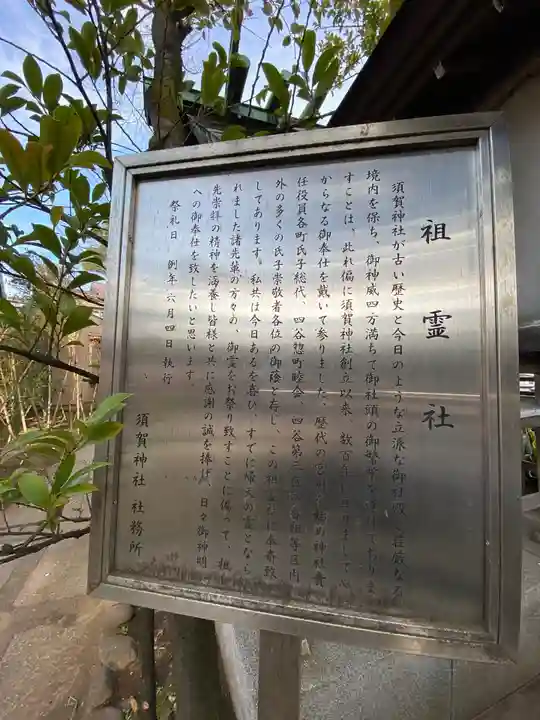 祖霊社
須賀神社が古い歴史と今日のような立派な御社殿、荘厳なる
境内を保ち、御神威四方満ちて御社頭の御繁栄を
すことは、此れ偏に須賀神社創立以来、数百年に
からなる御奉仕を戴いて参りました。歴代の宮司を始め神社責
任役員各町氏子総代、四谷惣町睦会、四谷第三
外の多くの氏子崇敬者各位の御蔭と存し、この祖霊社に奉斎致
してあります。私共は今日あるを喜び、すでに帰天の霊となら
れました諸先輩の方々の、御霊をお祭り致すことに依って、祖
先崇拝の精神を涵養し皆様と共に感謝の誠を捧げ、日々御神明
への御奉仕を致したいと思います。
祭礼日 例年六月四日執行
須賀神社 社務所